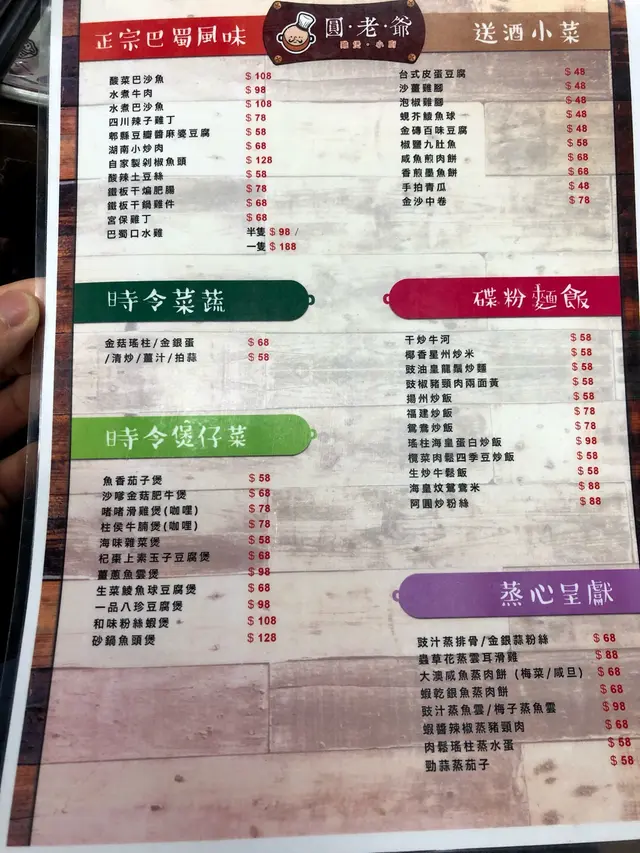 圓·老·爺
雞煲·小廚
正宗巴蜀風味
酸菜巴沙魚 $ 108
水煮牛肉 $ 98
水煮巴沙魚 $ 108
四川辣子雞丁 $ 78
郫縣豆瓣醬麻婆豆腐 $ 58
湖南小炒肉 $ 68
自家製剁椒魚頭 $ 128
酸辣土豆絲 $ 58
鐵板干煸肥腸 $ 78
鐵板干鍋雞件 $ 68
宮保雞丁 $ 68
巴蜀口水雞 半隻 $ 98 /
一隻 $ 188
送酒小菜
台式皮蛋豆腐 $ 48
沙薑雞腳 $ 48
泡椒雞腳 $ 48
蜆芥鯪魚球 $ 48
金磚百味豆腐 $ 48
椒鹽九肚魚 $ 58
咸魚煎肉餅 $ 68
香煎墨魚餅 $ 68
手拍青瓜 $ 48
金沙中卷 $ 78
時令菜蔬
金菇瑤柱/金銀蛋 $ 68
/清炒/薑汁/拍蒜 $ 58
碟粉麵飯
干炒牛河 $ 58
椰香星州炒米 $ 58
豉油皇龍鬚炒麵 $ 58
豉椒豬頸肉兩面黃 $ 58
揚州炒飯 $ 58
福建炒飯 $ 78
鴛鴦炒飯 $ 78
瑤柱海皇蛋白炒飯 $ 98
欖菜肉鬆四季豆炒飯 $ 58
生炒牛鬆飯 $ 58
海皇炆鴛鴦米 $ 88
阿圓炒粉絲 $ 88
時令煲仔菜
魚香茄子煲 $ 58
沙嗲金菇肥牛煲 $ 68
啫啫滑雞煲(咖哩) $ 78
柱侯牛腩煲(咖哩) $ 78
海味雜菜煲 $ 58
杞棗上素玉子豆腐煲 $ 68
薑蔥魚雲煲 $ 98
生菜鯪魚球豆腐煲 $ 68
一品八珍豆腐煲 $ 98
和味粉絲蝦煲 $ 108
砂鍋魚頭煲 $ 128
蒸心呈獻
豉汁蒸排骨/金銀蒜粉絲 $ 68
蟲草花蒸雲耳滑雞 $ 88
大澳咸魚蒸肉餅 (梅菜/咸旦) $ 68
蝦乾銀魚蒸肉餅 $ 68
豉汁蒸魚雲/梅子蒸魚雲 $ 98
蝦醬辣椒蒸豬頸肉 $ 68
肉鬆瑤柱蒸水蛋 $ 58
勁蒜蒸茄子 $ 58